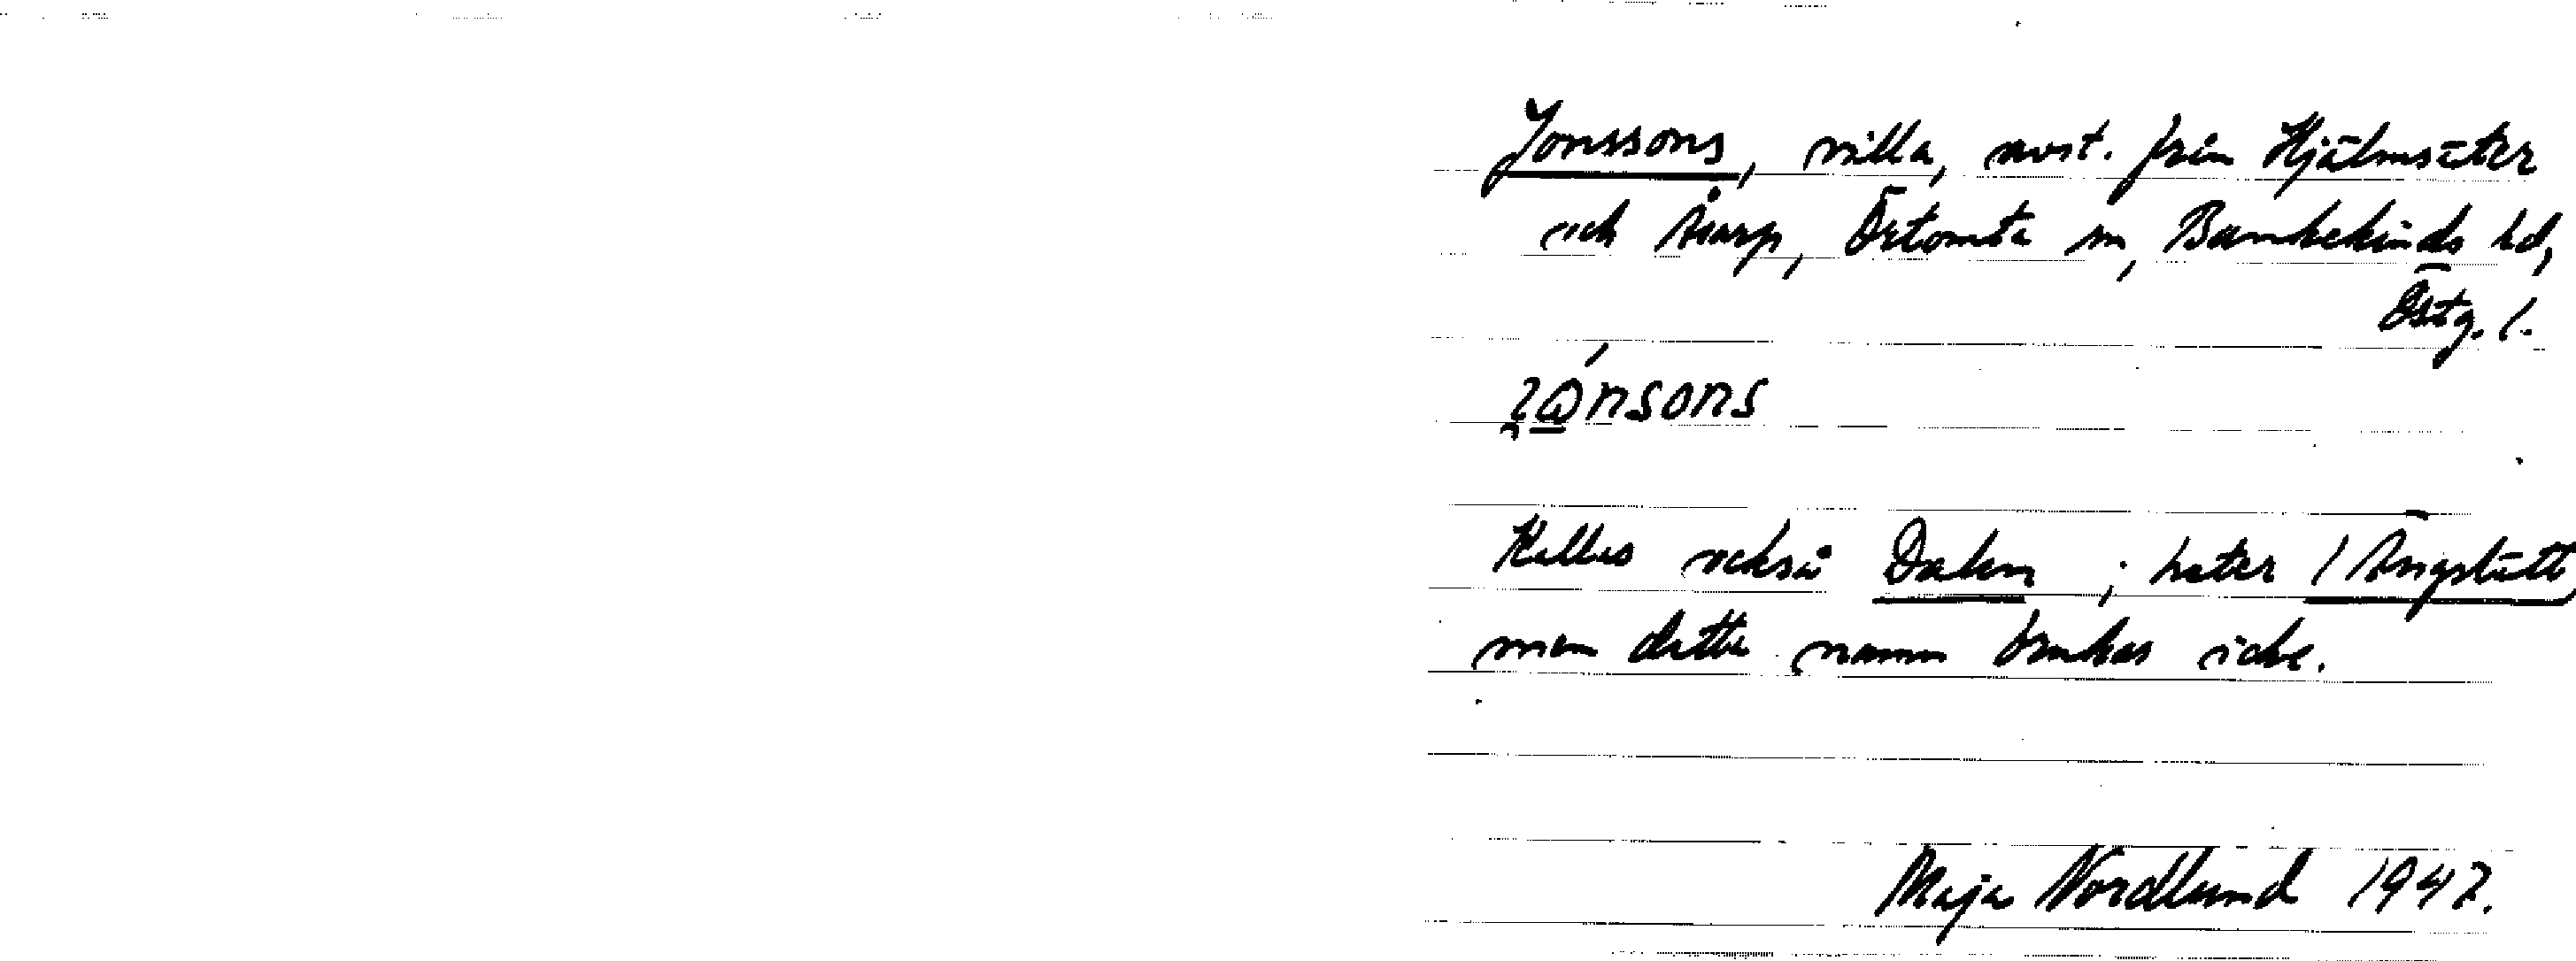 Jonssons, villa, avst. från Hjälmsäter
och Åsarp, Örtomta sn, Bankekinds hd,
Östg. l.
Kallas också Dalen ; heter Ängslätt,
men detta namn brukas icke.
Maja Nordlund 1947.